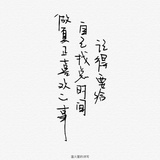 记得要给
自己找点时间
做真正喜欢之事！